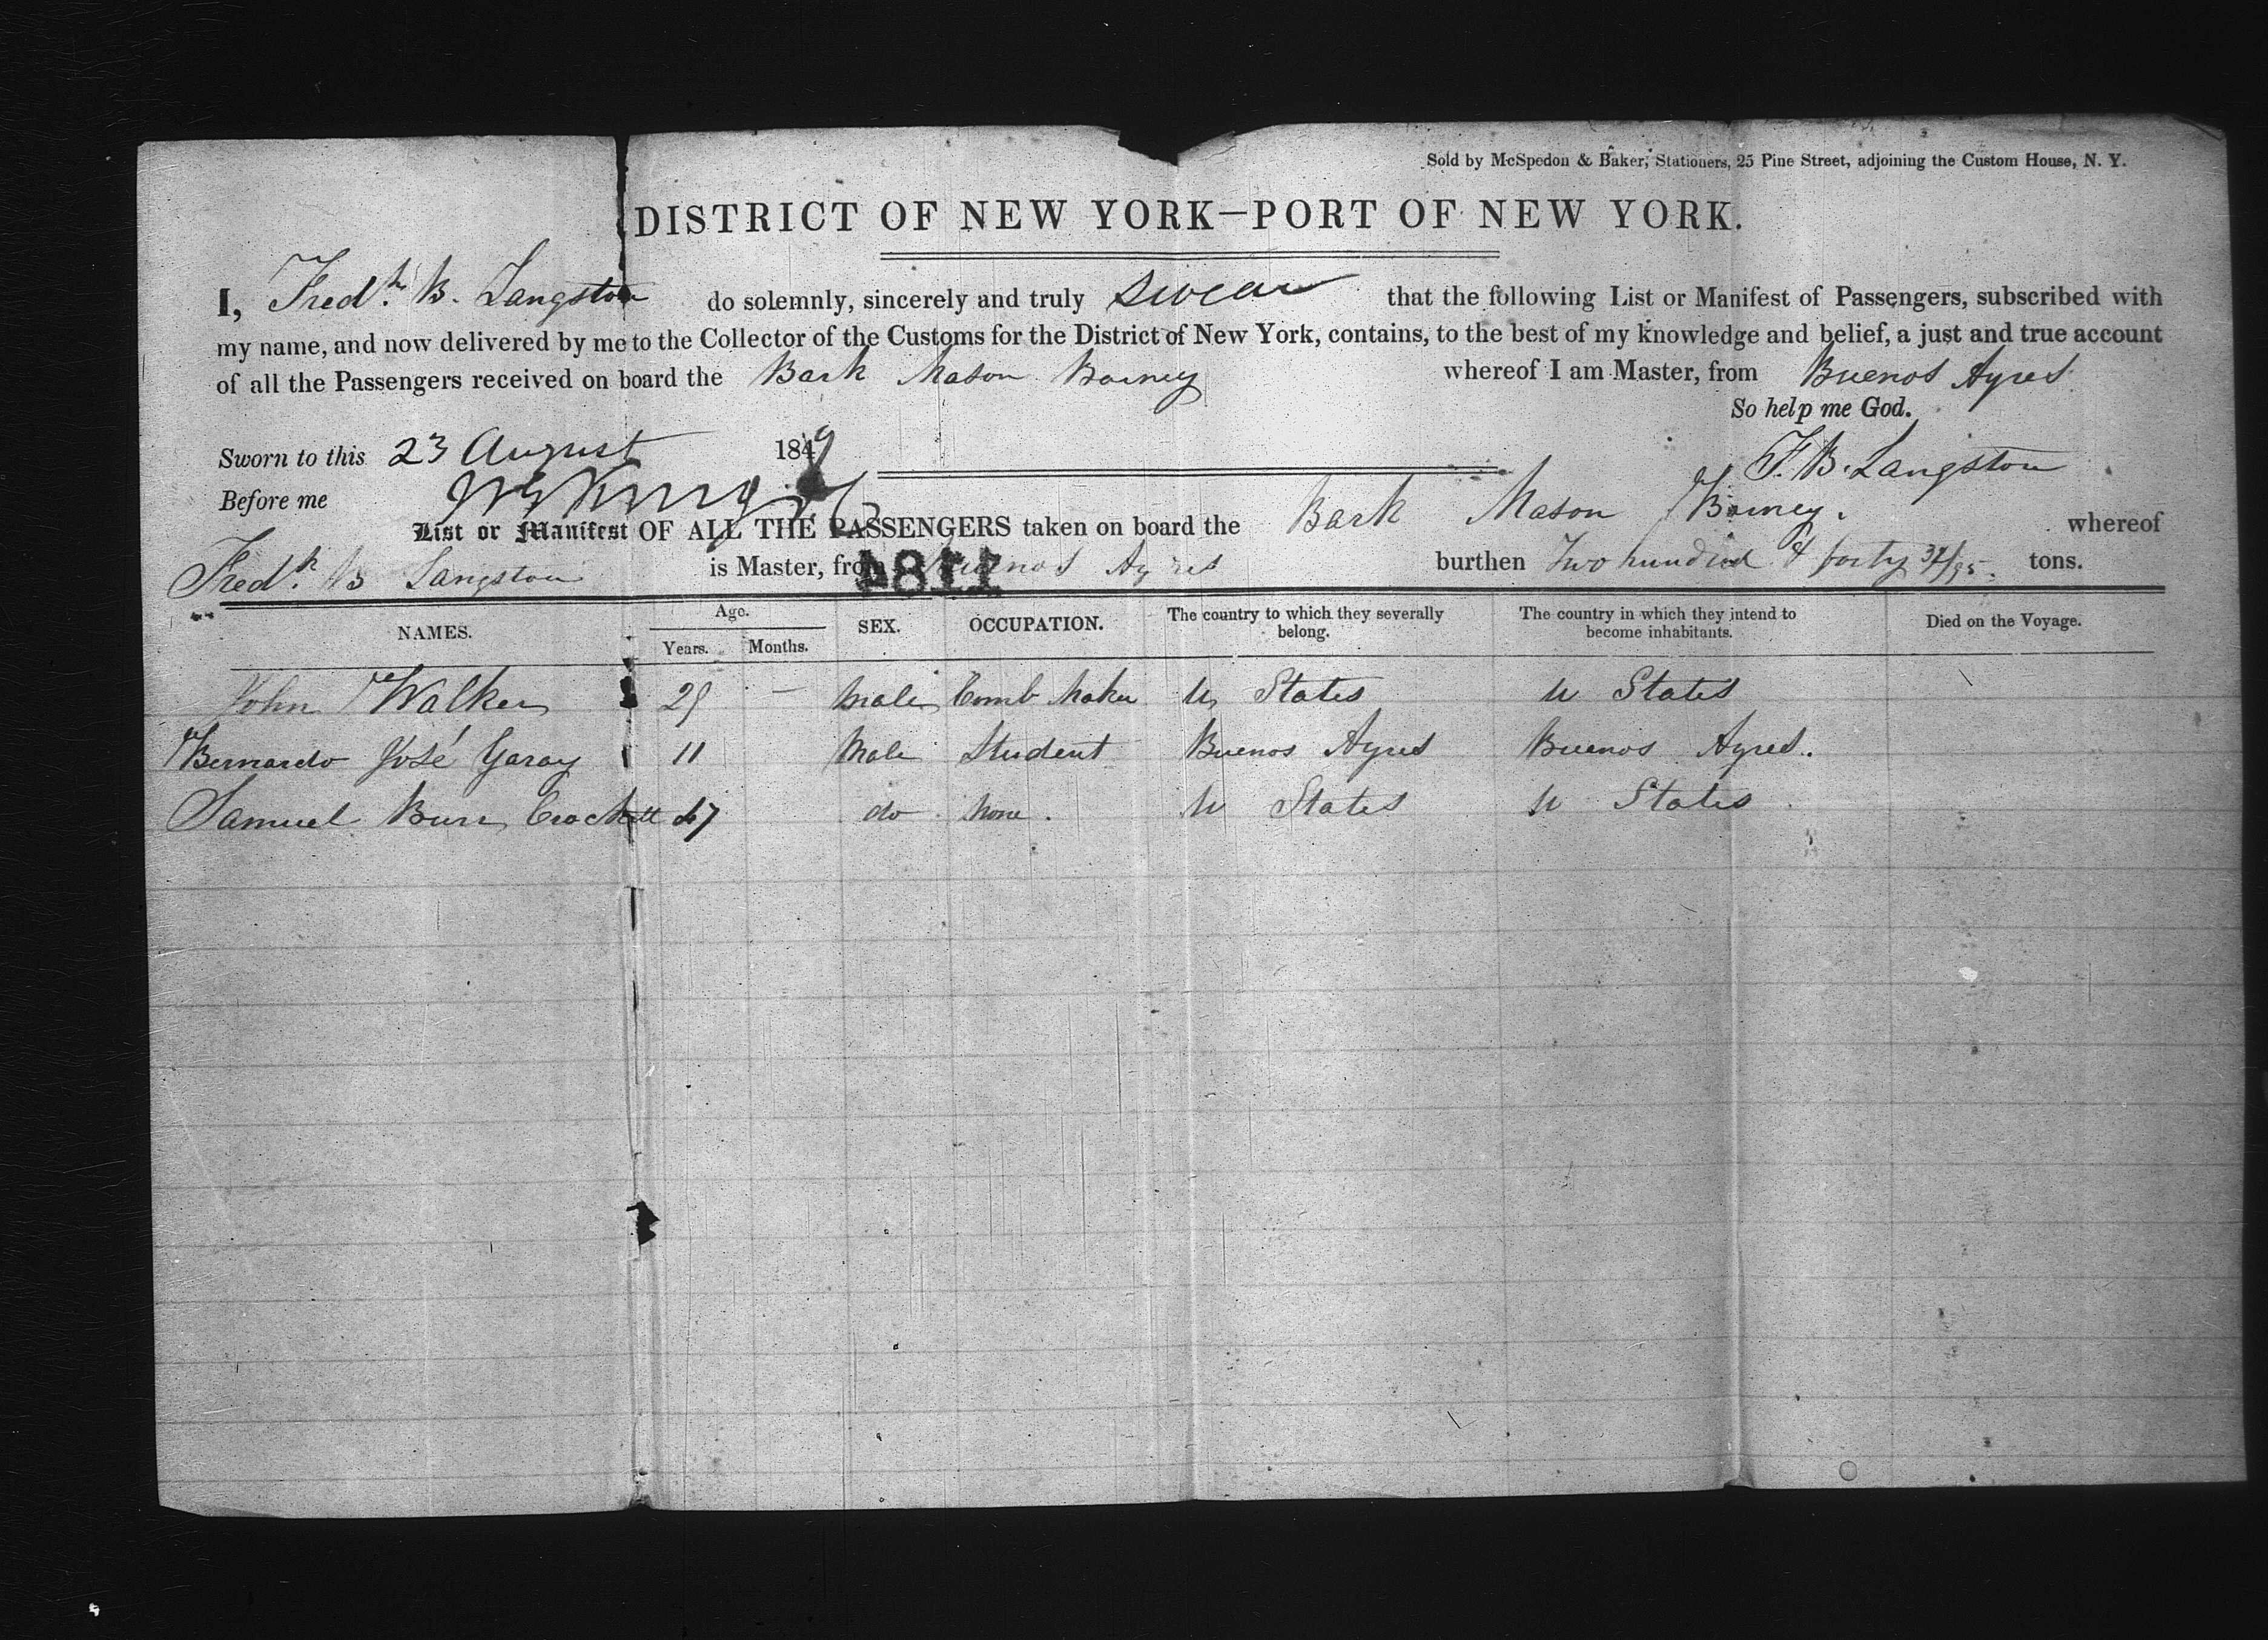 Sold by McSpedon & Baker, Stationers, 25 Pine Street, adjoining the Custom House, N. Y.
DISTRICT OF NEW YORK—PORT OF NEW YORK.
I, Fredk. B. Langston do solemnly, sincerely and truly swear that the following List or Manifest of Passengers, subscribed with
my name, and now delivered by me to the Collector of the Customs for the District of New York, contains, to the best of my knowledge and belief, a just and true account
of all the Passengers received on board the Bark Mason Barney whereof I am Master, from Buenos Ayres
So help me God.
Sworn to this 23 August 1849
F. B. Langston
Before me
List or Manifest OF ALL THE PASSENGERS taken on board the Bark Mason Barney. whereof
Fredk. B Langston is Master, from Buenos Ayres burthen Two hundred & forty 34/95. tons.
NAMES. Age. Years. Months. SEX. OCCUPATION. The country to which they severally belong. The country in which they intend to become inhabitants. Died on the Voyage.
John Walker 29 — Male Comb Maker U States U States
Bernardo José Garay 11 Male Student Buenos Ayres Buenos Ayres.
Samuel Burr Crockett 47 do None. U States U States